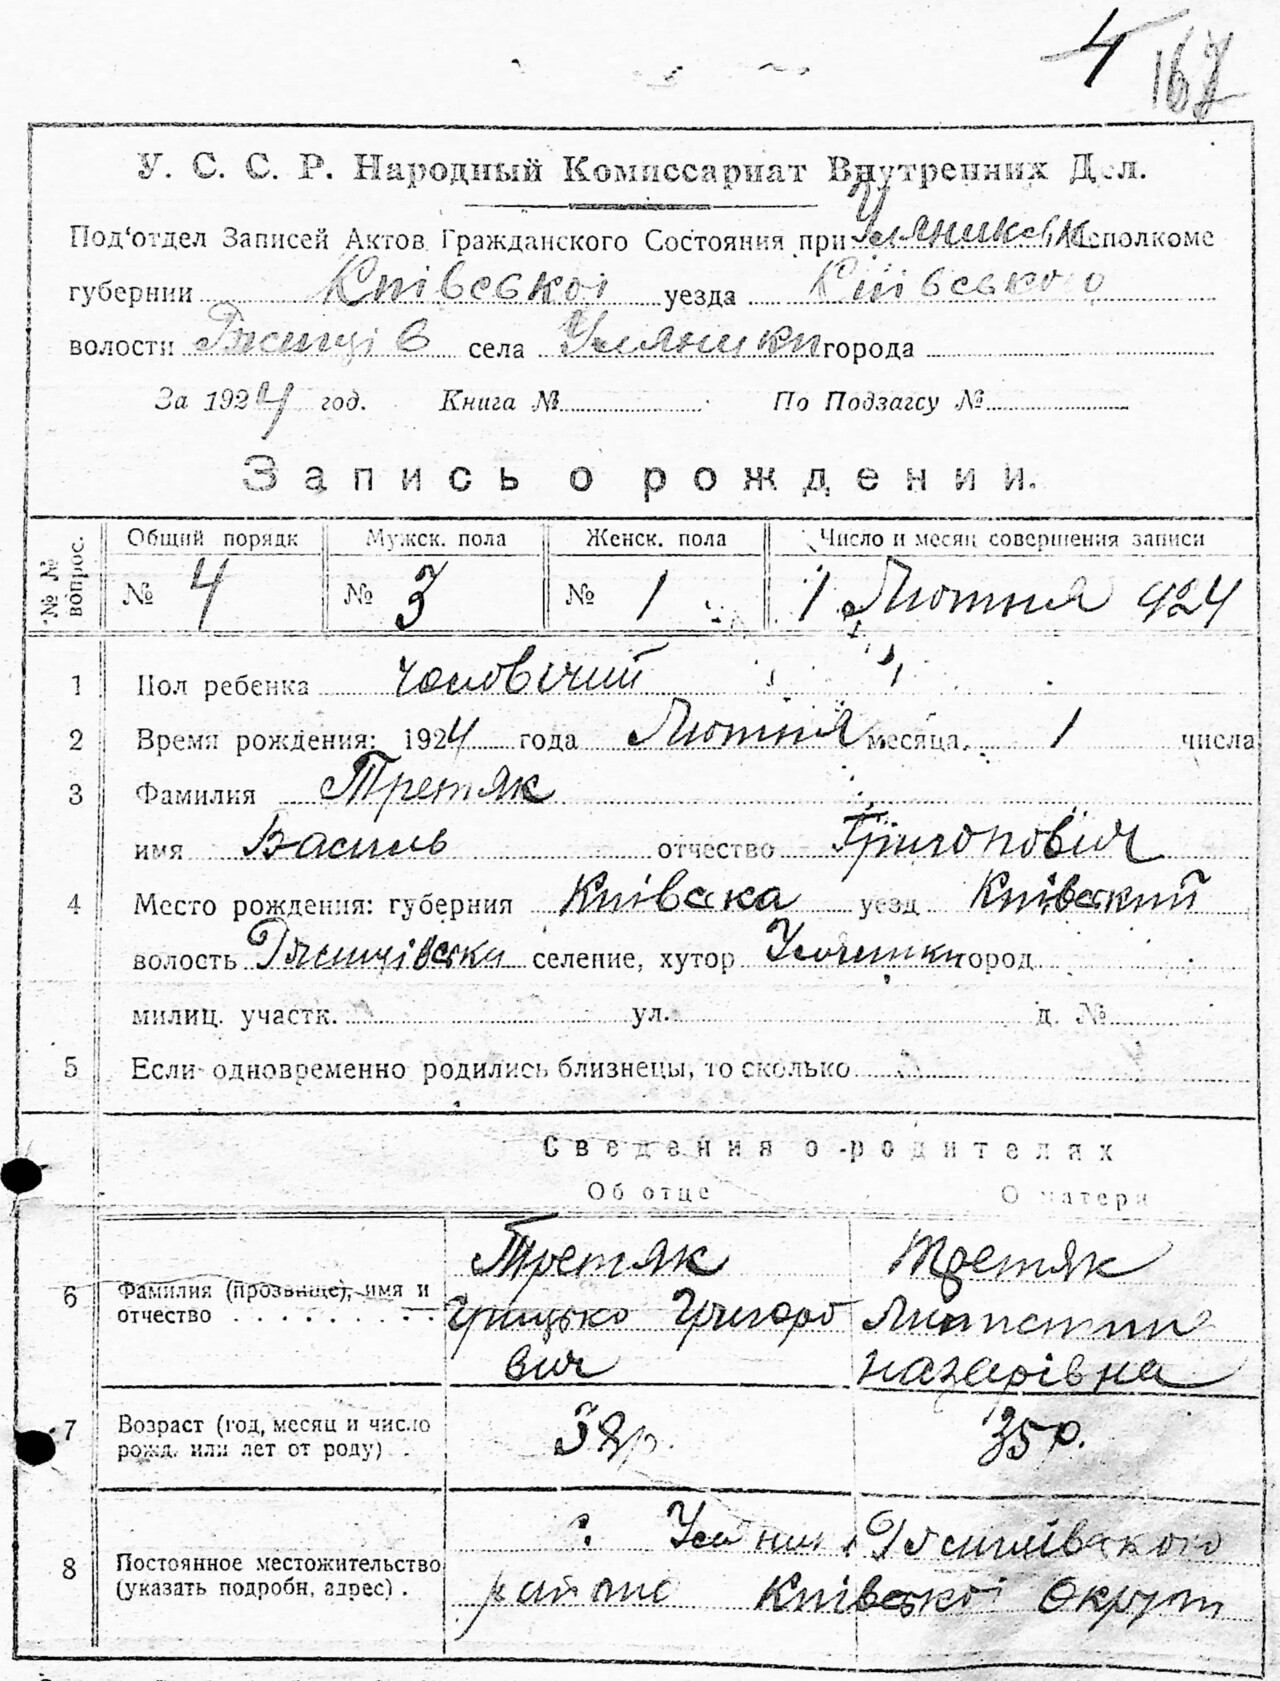 4 167
У. С. С. Р. Народный Комиссариат Внутренних Дел.
Под'отдел Записей Актов Гражданского Состояния при Уляниксък Исполкоме
губернии Київської уезда Київського
волости Ржищів села Уляники города
За 1924 год. Книга № По Подзагсу №
Запись о рождении.
№ № вопрос. Общий порядк Мужск. пола Женск. пола Число и месяц совершения записи
№ 4 № 3 № 1 1 Лютня 924
1 Пол ребенка чоловічий
2 Время рождения: 1924 года Лютня месяца 1 числа
3 Фамилия Третяк
имя Василь отчество Григорович
4 Место рождения: губерния Київска уезд Київский
волость Ржищівска селение, хутор Уляники город
милиц. участк. ул. д. №
5 Если одновременно родились близнецы, то сколько
Сведения о родителях
Об отце О матери
6 Фамилия (прозвище), имя и отчество Третяк Третяк
Грицько Григоро
вич Назарівна
7 Возраст (год, месяц и число рожд. или лет от роду) 38р. 35р.
8 Постоянное местожительство (указать подробн, адрес) с. Уляники Ржищівского
району Київської Округи